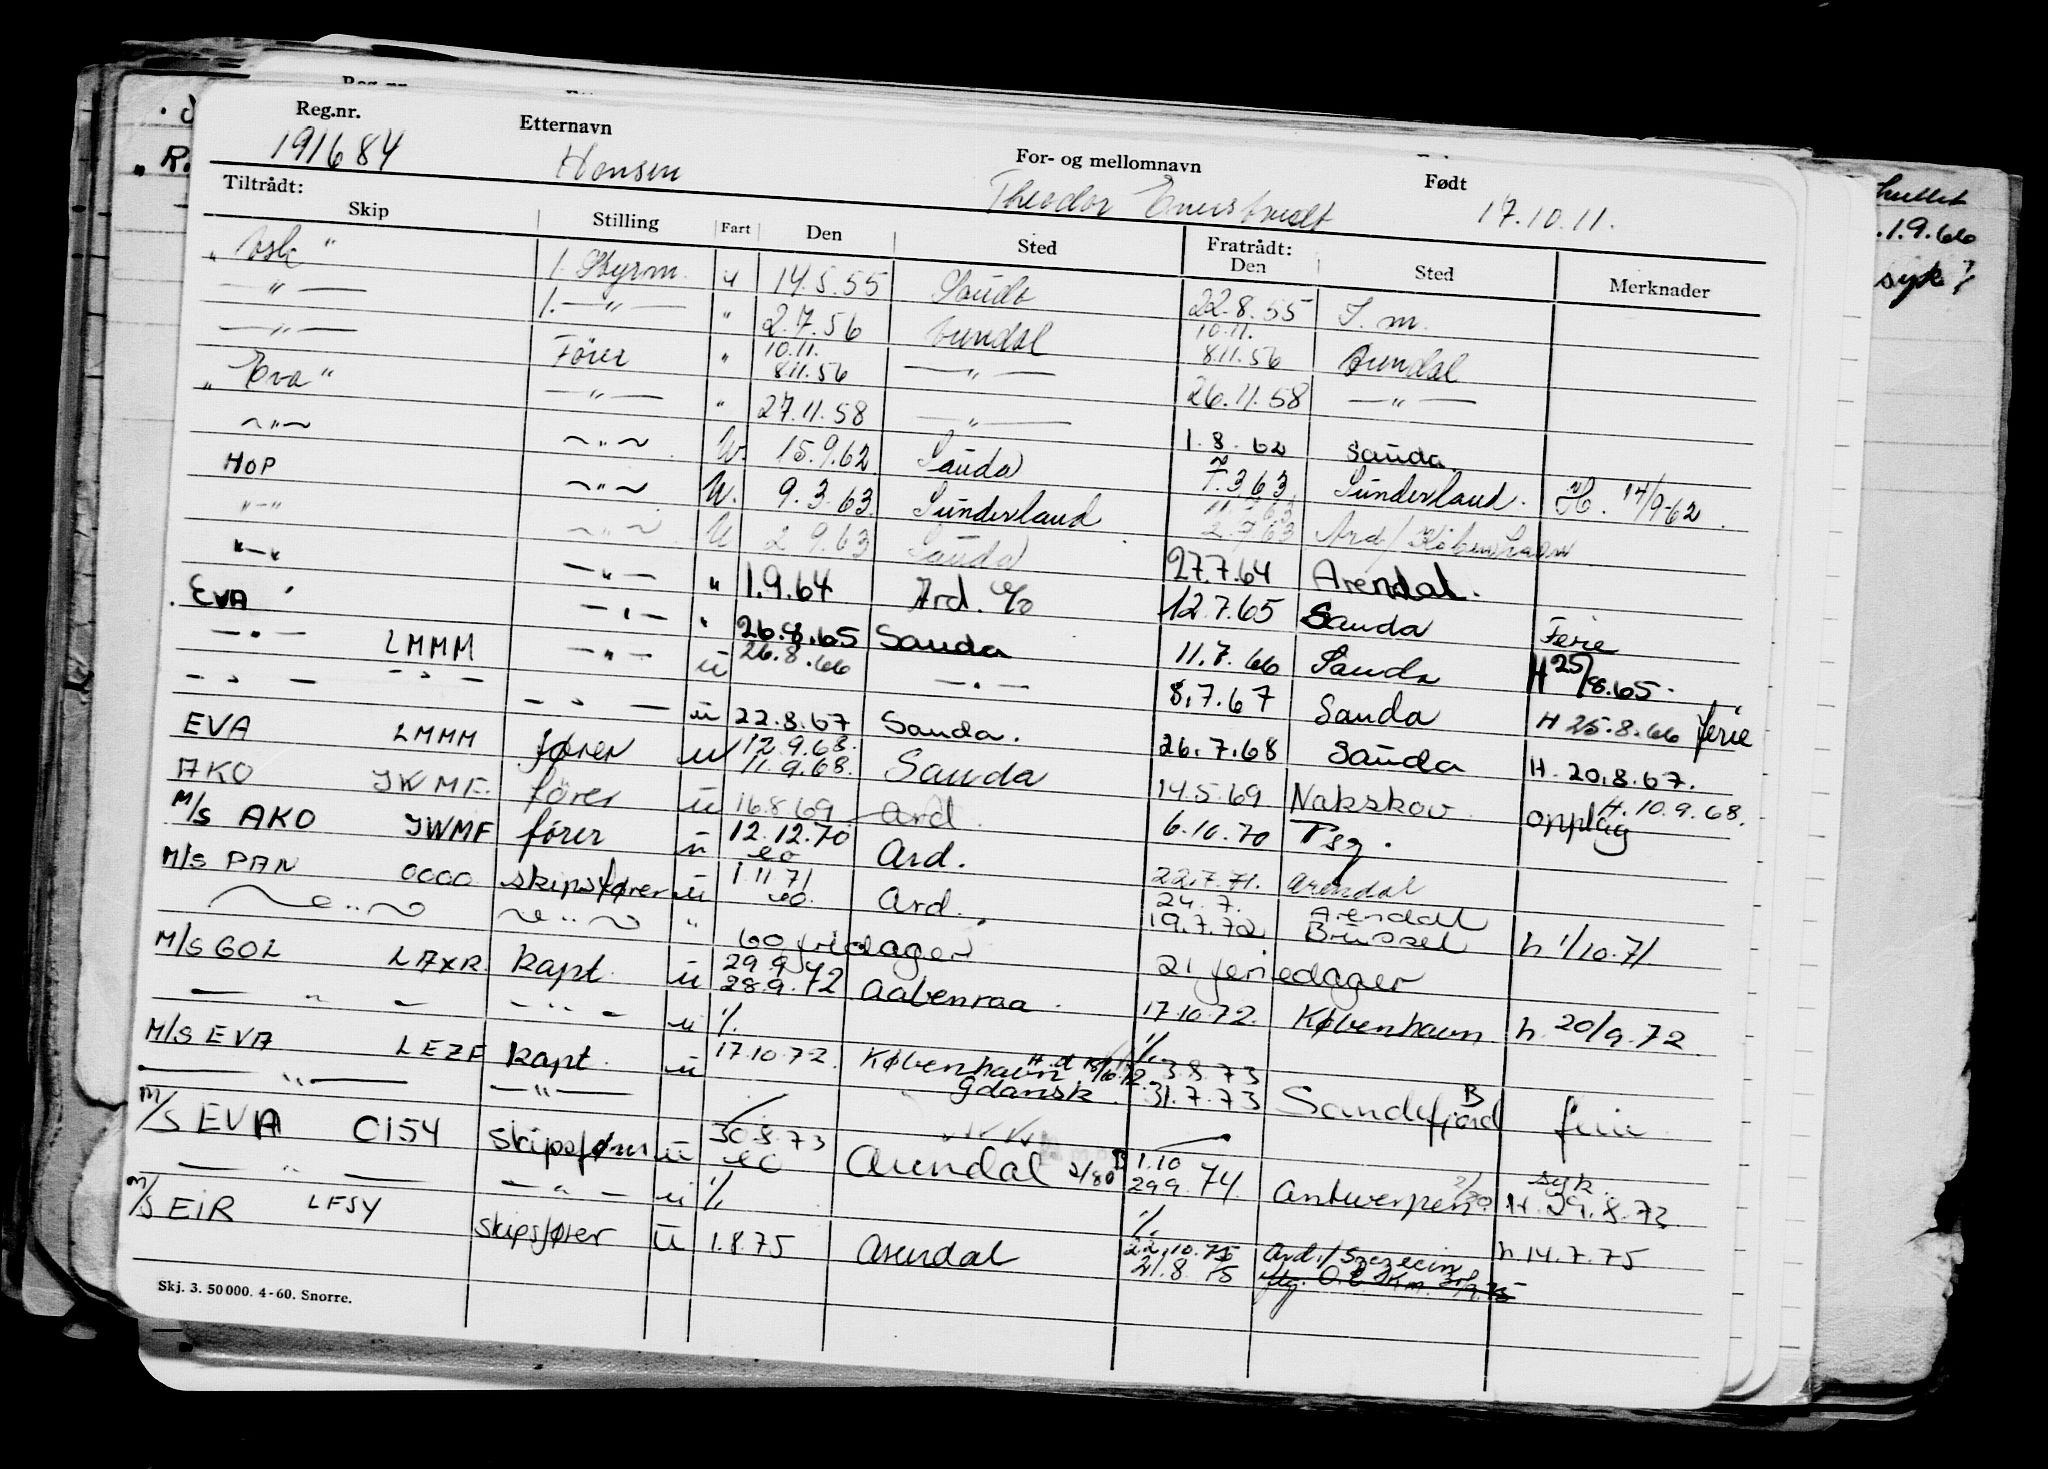 Reg.nr. Etternavn For- og mellomnavn Født
191684 Hansen Theodor 17.10.11.
Tiltrådt: Fratrådt:
Skip Stilling Fart Den Sted Den Sted Merknader
1. Styrm. u 14.5.55 Sauda 22.8.55 S.m.
— " — 1. — " — " 2.7.56 Arendal 10.11. 8.11.56 Arendal
— " — Förer " 10.11. 8.11.56 — " — 26.11.58 — " —
„ Eva " — " — " 27.11.58 — " — 1.8.62 Sauda
~ " ~ ~ " ~ U. 15.9.62 Sauda 7.3.63 Sunderland. H. 14/9-62.
HOP ~ " ~ U. 9.3.63 Sunderland 2.7.63 Ard/København
" — " ~ " ~ U 2.9.63 Sauda 27.7.64 Arendal.
" — " — " — " 1.9.64 Ard. e/o 12.7.65 Sauda Ferie
EVA — " — " 26.8.65 Sauda 11.7.66 Sauda H 25/8.65.
— " — LMMM — " — u 26.8.66 — " — 8.7.67 Sauda H 25.8.66 ferie
— " — — " — — " — u 22.8.67 Sauda. 26.7.68 Sauda H. 20.8.67.
EVA LMMM fører u 12.9.68. 11.9.68. Sauda 14.5.69 Nakskov H. 10.9.68. opplag
AKO JWMF. fører u 16.8.69 Ard. 6.10.70 Tsg.
M/S AKO JWMF fører u 12.12.70 eo Ard. 22.7.71. Arendal
M/S PAN OCOO skipsfører u 1.11.71 eo. Ard. 24.7. 19.7.72 Arendal Brüssel h 1/10.71
~ " ~ ~ " ~ " 60 fridager 21 feriedager
M/S GOL LAXR kapt. u 29.9 28.9.72 Aabenraa. 17.10.72. København h. 20/9.72
— " — — " — u % %
M/S EVA LEZF kapt. u 17.10.72 København Gdansk. 3.8.73 31.7.73 Sandefjord B ferie
— " — — " —
M/S EVA CI54 skipsfører u 30.8.73 eo Arendal 2/80 B 1.10 29.9.74. Antwerpen 2/80 syk. H. 29.8.73
— " — — " — u % %
M/S EIR LFSY skipsfører u 1.8.75 Arendal 22.10.75 21.8.75 Ard./Szczecin h 14.7.75
Skj. 3. 50000. 4-60. Snorre.
Reg.nr.
1.9.66
syk?